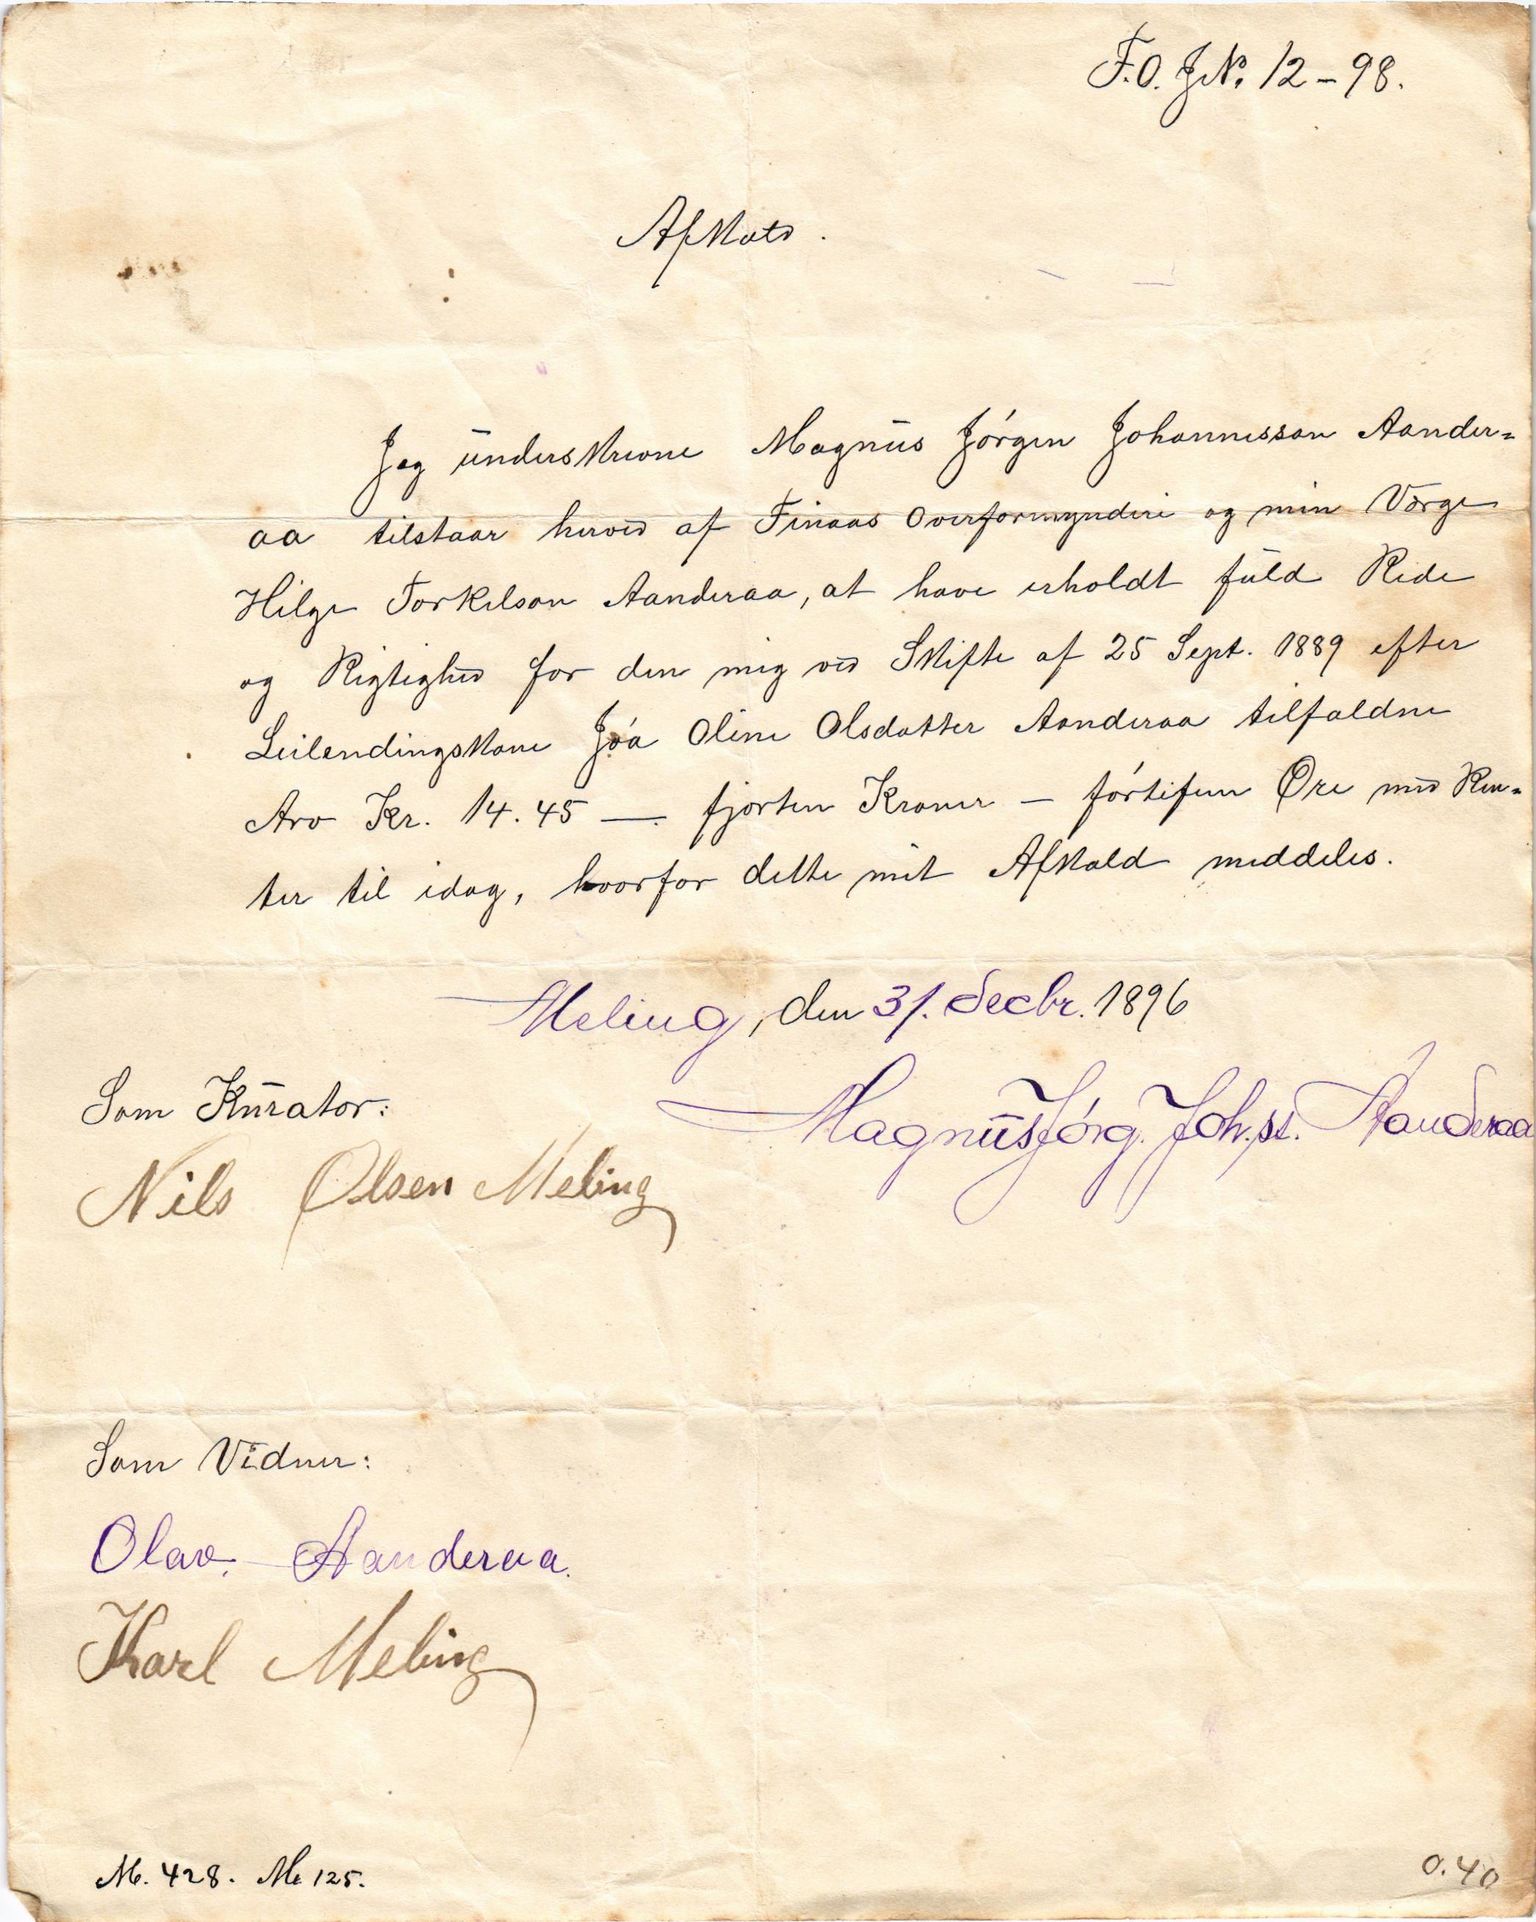 F.O. J.No. 12-98.
Afkald.
Jeg underskrevne Magnus Jórgen Johannesson Aander=
aa tilstaar herved af Finaas Overformynderi og min Værge
Helge Torkelson Aanderaa, at have erholdt fuld Rede
og Rigtighed for den mig ved Skifte af 25 Sept. 1889 efter
Leilendingskone Jóa Oline Olsdatter Aanderaa tilfaldne
Arv Kr. 14.45 — fjorten Kroner —førtifem Øre med Ren=
ter til idag, hvorfor dette mit Afkald meddeles.
Meling, den 31. Decbr. 1896
Som Kurator:
Magnus Jórg. Joh.ss. Aanderaa
Nils Olsen Meling
Som Vidner:
Olav. Aanderaa.
Karl Meling
M. 428. M. 125.
0.40